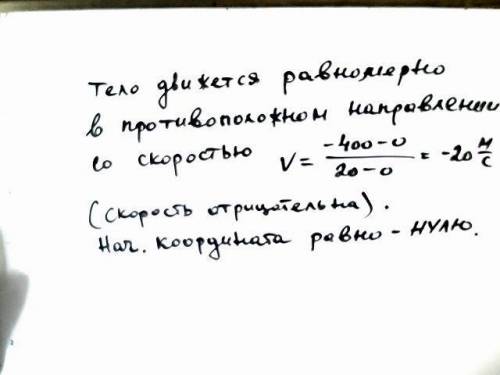 Тело движется равномерно
в противоположном направлении
со скоростью V = \frac{-400-0}{20-0} = -20 \frac{м}{с}
(скорость отрицательна).
Нач. координата равно - НУЛЮ.